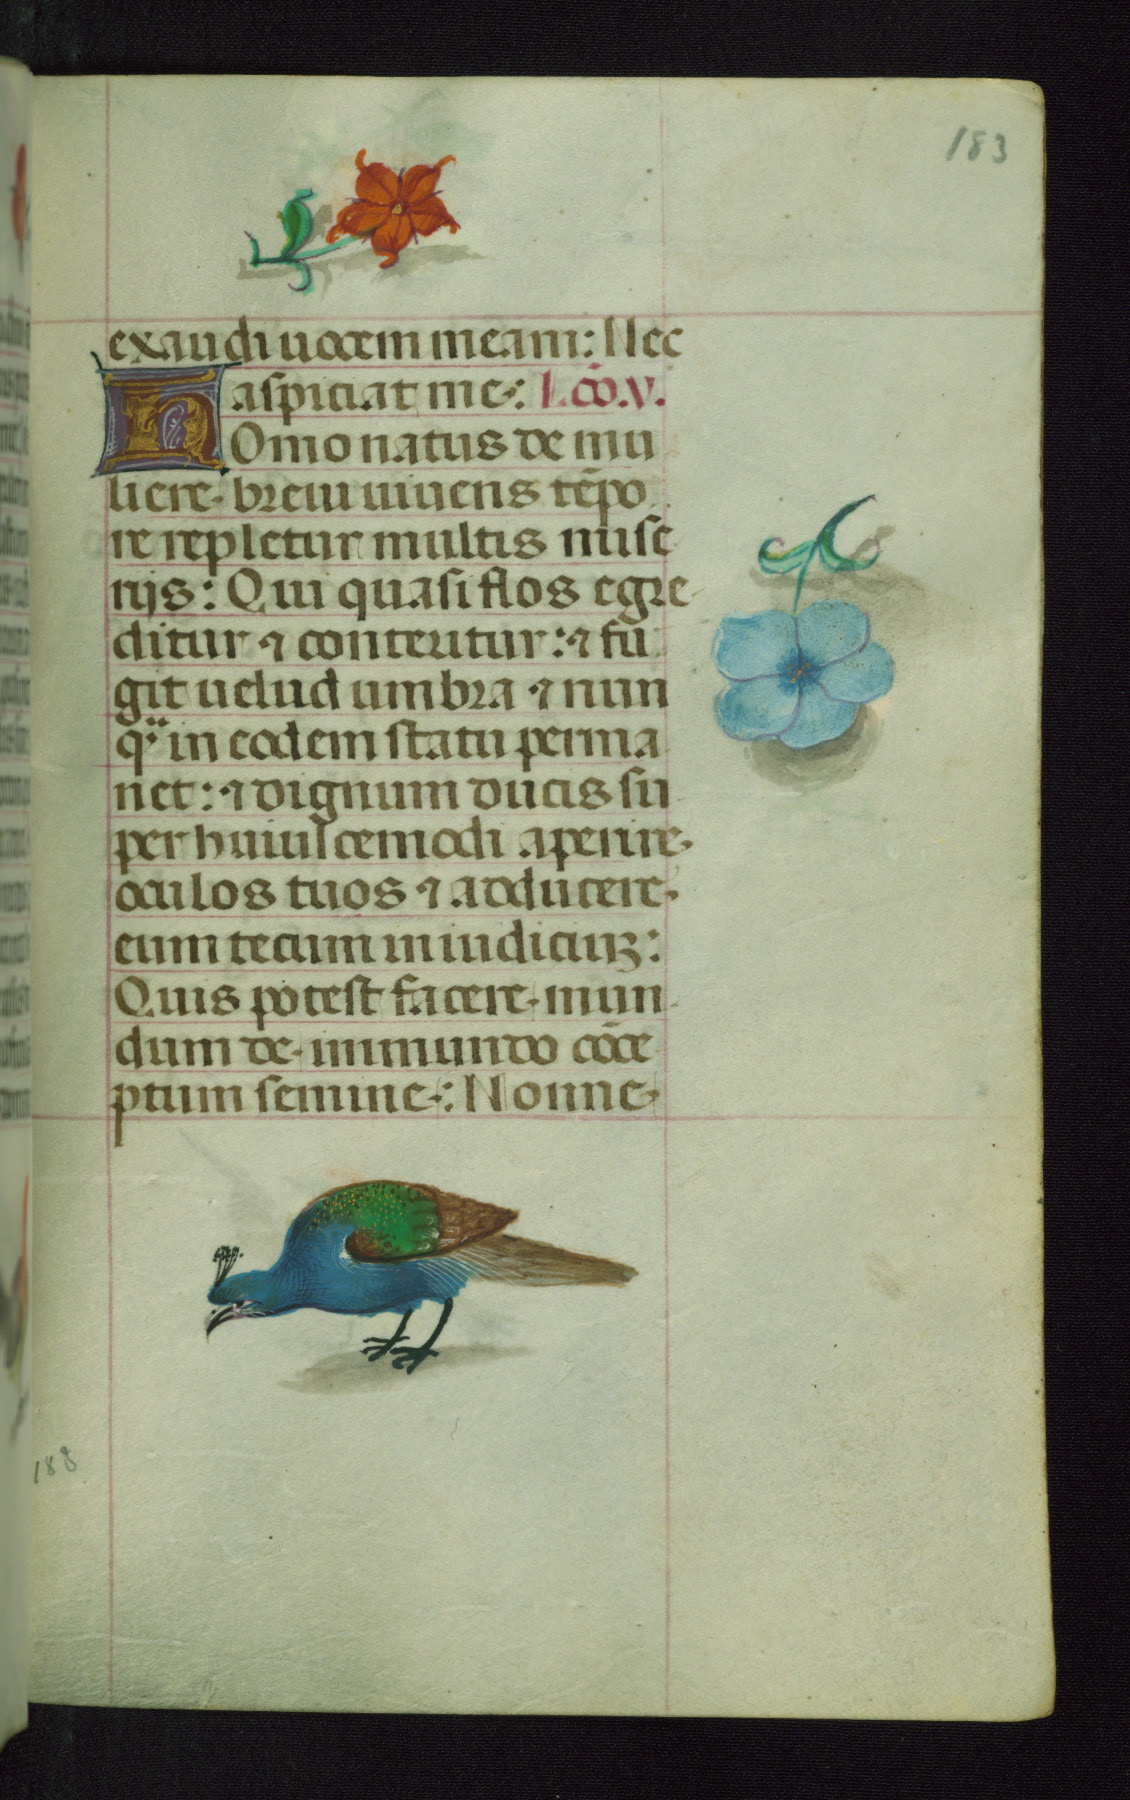 183
exaudi uocem meam: Nec
aspiciat me: Lcō.v.
hOmo natus de mu
liere breui uiuens tēpo
re repletur multis mise
rijs: Qui quasi flos egre
ditur ⁊ conteritur: ⁊ fu
git uelud umbra ⁊ nun
qͣ in eodem statu perma
net: ⁊ dignum ducis su
per huiuscemodi aperire
oculos tuos ⁊ adducere
eum tecum in iudiciuꝫ:
Quis potest facere mun
dum de immundo cōce
ptum semine: Nonne
188